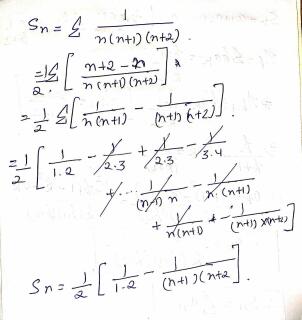 Sn = Σ 1/(n(n+1)(n+2)).
= 1/2 Σ [ (n+2-n)/(n(n+1)(n+2)) ]
= 1/2 Σ [ 1/(n(n+1)) - 1/((n+1)(n+2)) ].
= 1/2 [ 1/1.2 - 1/2.3 + 1/2.3 - 1/3.4
+ ... 1/((n-1)n) - 1/(n.(n+1))
+ 1/(n(n+1)) - 1/((n+1)(n+2)) ]
Sn = 1/2 [ 1/1.2 - 1/((n+1)(n+2 ].